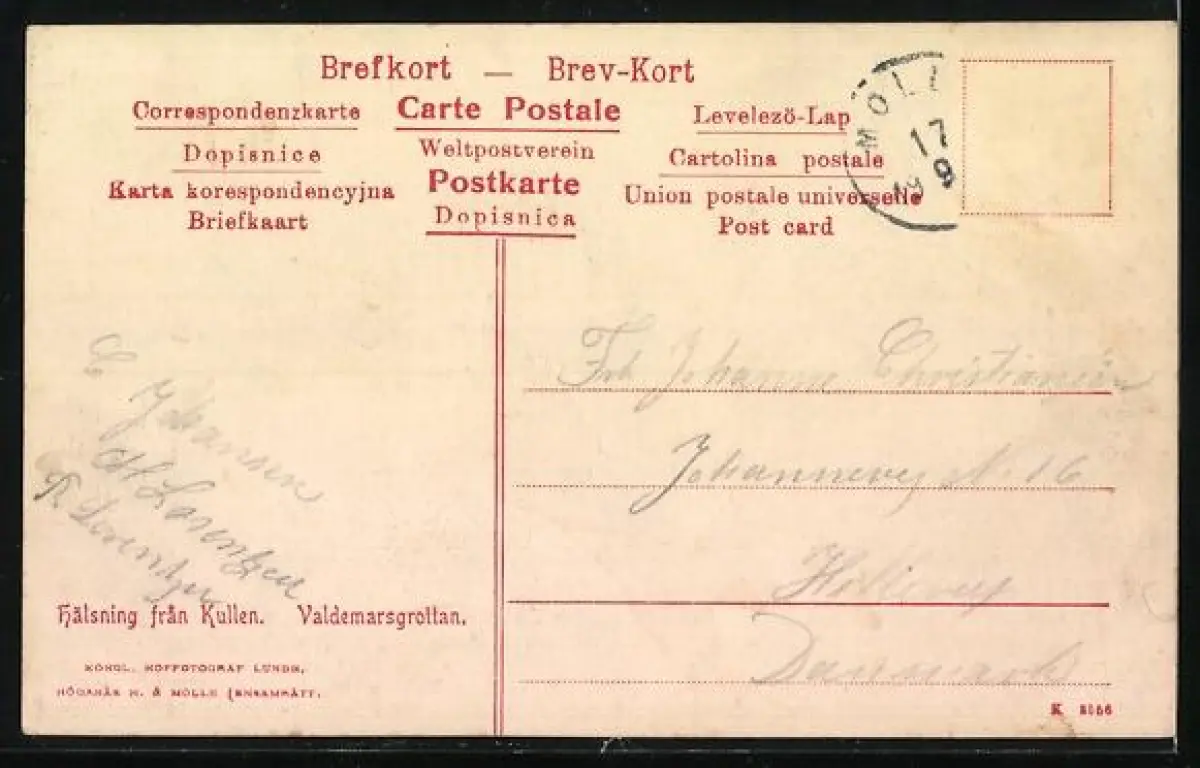 Brefkort — Brev-Kort
Correspondenzkarte Carte Postale Levelezö-Lap
Dopisnice Weltpostverein Cartolina postale
Karta korespondencyjna Postkarte Union postale universelle
Briefkaart Dopisnica Post card
MÖLL
17
9
Frk Johanne Christiansen
Johannevej No. 16
Danmark
E Johansen
Lorentzen
Lorentzen
Hälsning från Kullen. Valdemarsgrottan.
KONGL. HOFFOTOGRAF LUNDH,
HÖGANÄS H. & MÖLLE (ENSAMRÄTT.
K 8056